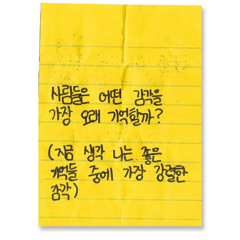 사람들은 어떤 감각을
가장 오래 기억할까?
(지금 생각 나는 좋은
기억들 중에 가장 강렬한
감각)